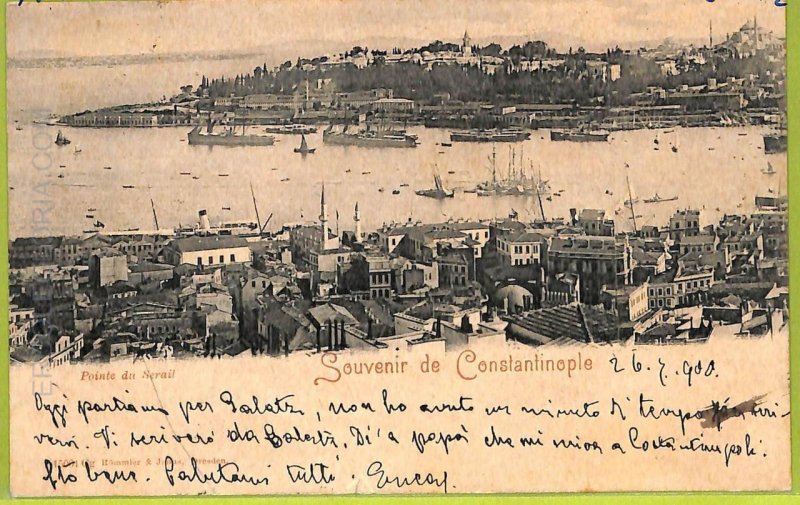 Pointe du Serail
Souvenir de Constantinople 26.7.900
Oggi partiamo per Galatz, non ho avuto un minuto di tempo per scri-
vervi. Vi scriverò da Galatz. Di' a papà che mi scriva a Costantinopoli.
Römmler & Jonas, Dresden
Sto bene. Salutami tutti.